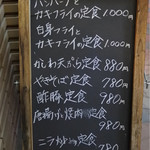 ハンバーグと
カキフライの定食 1.000円
白身フライと
カキフライの定食 1.000円
かしわ天ぷら定食 880円
やきそば定食 780円
酢豚定食 980円
唐揚げ 焼肉 定食
980円
ニラ 定食
780円